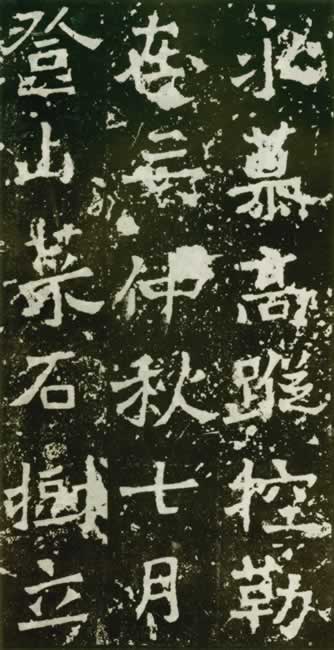 永慕高蹤控勒
在三仲秋七月
登山菜石樹立